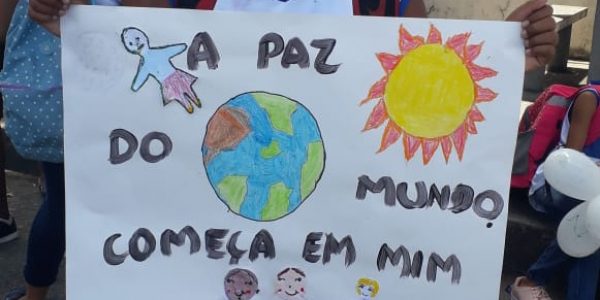 A PAZ
DO MUNDO
COMEÇA EM MIM